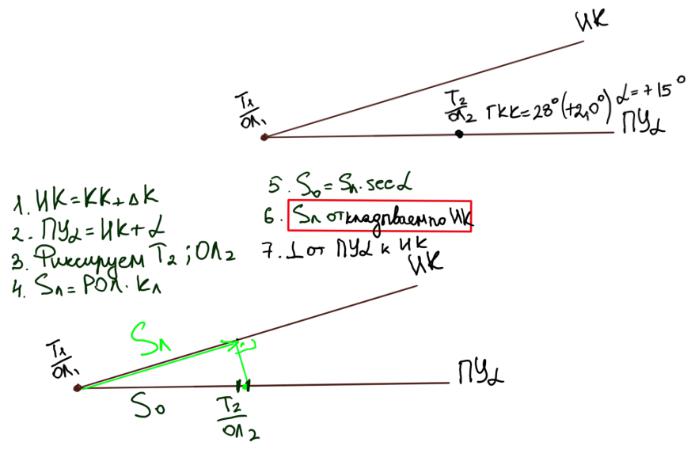 ИК
T₁/ОЛ₁
T₂/ОЛ₂ ГКК=28°(+2,0°) α=+15°
ПУα
1. ИК=КК+ΔК
2. ПУα=ИК+α
3. Фиксируем T₂; ОЛ₂
4. Sл=РОЛ·Kл
5. S₀=Sл·secα
6. Sл откладываем по ИК
7. ⊥ от ПУα к ИК
ИК
T₁/ОЛ₁
Sл
ПУα
S₀
T₂/ОЛ₂